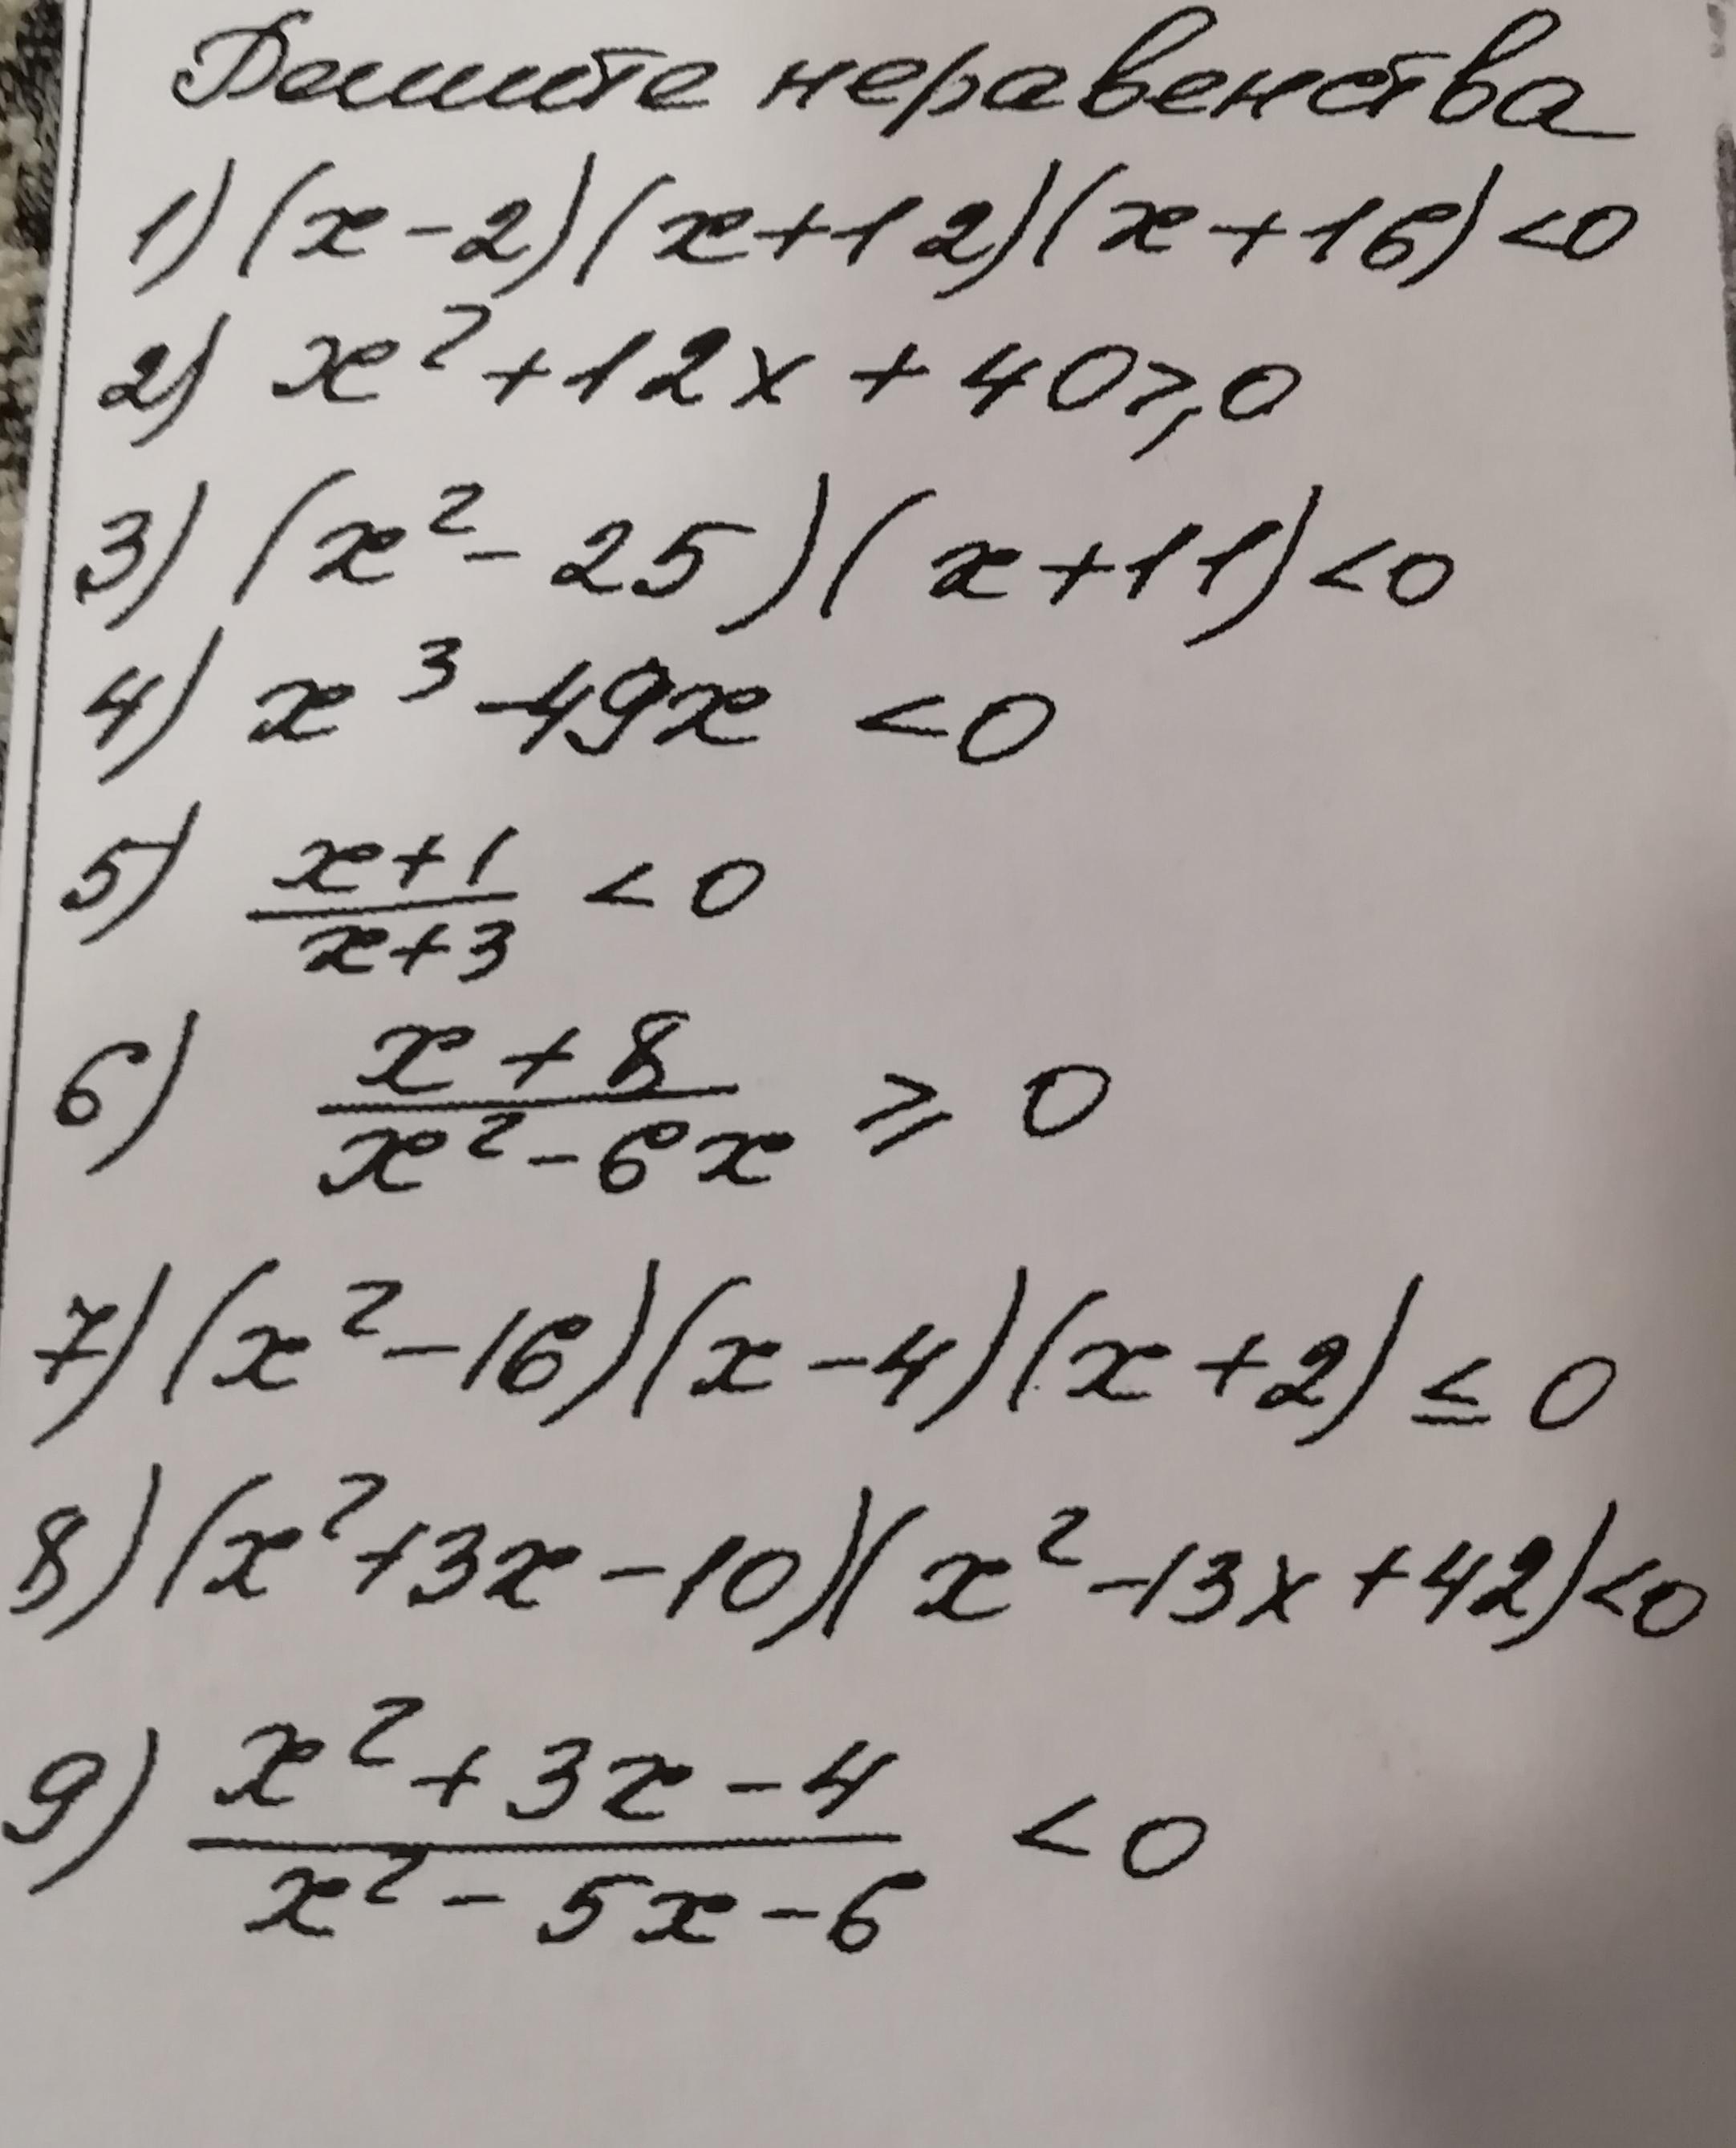 Решите неравенства
1) (x-2)(x+12)(x+16)<0
2) x²+12x+40⩾0
3) (x²-25)(x+11)<0
4) x³-49x<0
5) x+1
x+3 <0
6) x+8
x²-6x ⩾ 0
7) (x²-16)(x-4)(x+2) ≤ 0
8) (x²+3x-10)(x²-13x+42)<0
9) x²+3x-4
x²-5x-6 <0